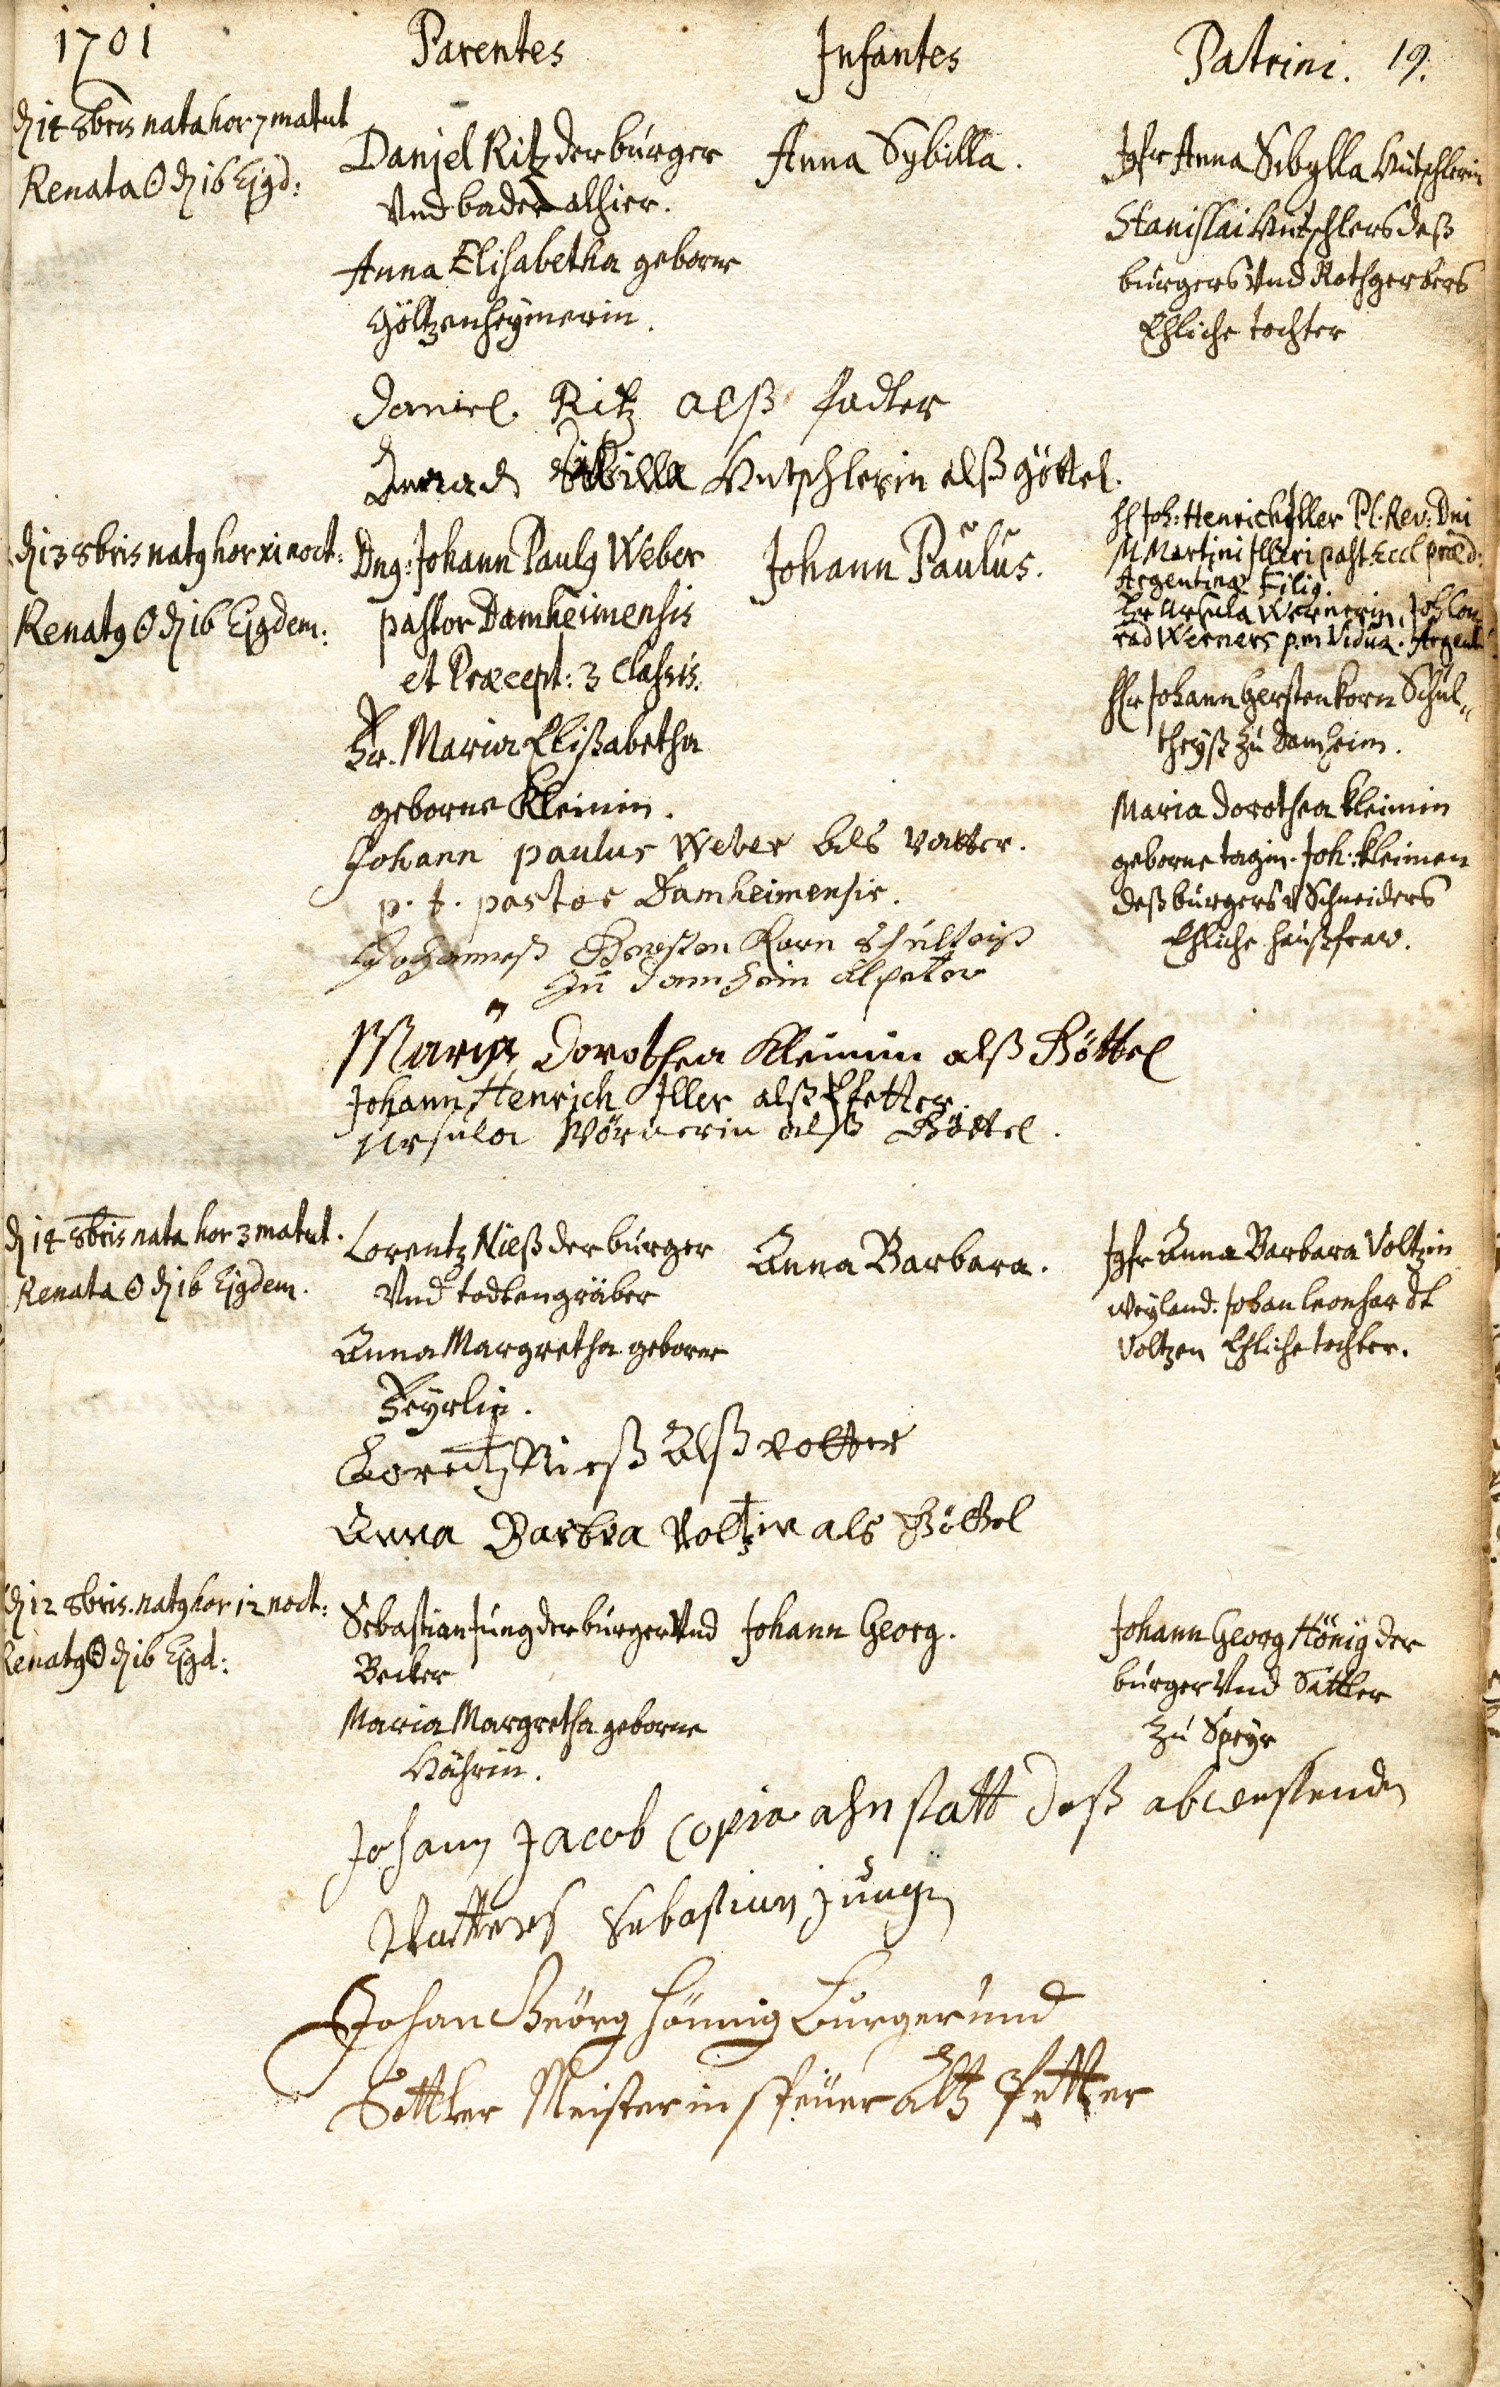 1701 Parentes Infantes Patrini. 19.
d 14 8bris nata hor 7 matut
Renata ☉ d 16 Ejgd:
Daniel Ritz der burger
Vnd bader alhier.
Anna Elisabetha geborne
Höltzenheymerin.
Anna Sybilla.
Jgfr Anna Sibylla Kutschlerin
Stanislai Kutschlers deß
burgers Vnd Rothgerbers
Ehliche tochter
Daniel Ritz alß fadter
Sibilla Kutschlerin alß göttel.
d 13 8bris natg hor xi noct:
Renatg ☉ d 16 Ejgdem:
Dng: Johann Paulg Weber
pastor Damheimensis
et Præcept: 3 Classis.
Fr. Maria Elisabetha
geborne Kleinin.
Johann Paulus.
H Joh: Henrich Iller Pl. Rev: Dni
M Martini Illeri past. Eccl præd:
Argentinæ Filig.
Fr Ursula Wernerin, Joh Con
rad Werners p.m Vidua. Argent:
Hr Johann Gerstenkorn Schul„
theyß zu Damheim.
Maria Dorothea Kleinin
geborne Johkleinen
deß burgers V Schneiders
Ehliche haußfraw.
Johann paulus Weber als Vatter.
p. t. pastor Damheimensis.
Johanneß Gersten Korn Schulteiß
zu Damheim
Maria Dorothea Kleinin alß Göttel
Johann Henrich Iller alß Pfetter.
Ursula Wörnerin alß Göttel.
d 14 8bris nata hor 3 matut.
Renata ☉ d 16 Ejgdem.
Lorentz Nieß der burger
Vnd todtengräber
Anna Margretha geborne
Beyrlin.
Anna Barbara.
Jgfr Anna Barbara Voltzin
weyland. Johan Leonhardt
Voltzen Ehliche tochter.
Lorentz Nieß Alß vatter
Anna Barbra Voltzin als Göttel
d 12 8bris. natg hor 12 noct:
Renatg ☉ d 16 Ejgd:
Sebastian Jung der burger Vnd
Becker
Maria Margretha geborne
Johann Georg.
Johann Georg Hönig der
burger Vnd Sattler
zu Speyr
Johann Jacob Copia ahn statt deß abwesenden
Vatters Sebastian Jungen
Johan Georg Hönnig burger und
Sattler Meister in Speyer Altz Pfetter